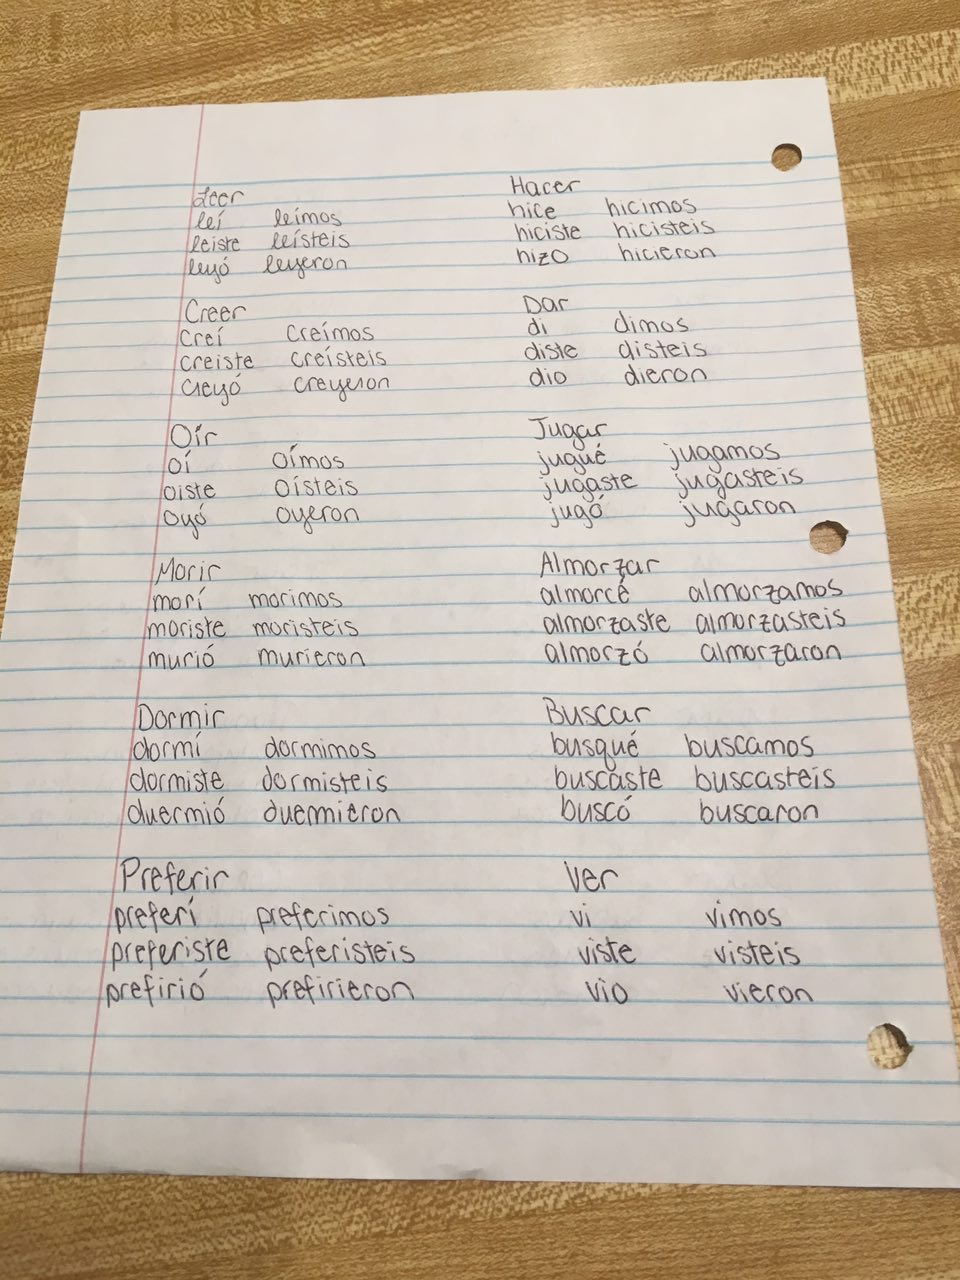 Leer
leí leímos
leiste leísteis
leyó leyeron
Creer
creí creímos
creiste creísteis
creyó creyeron
Oír
oí oímos
oiste oísteis
oyó oyeron
Morir
morí morimos
moriste moristeis
murió murieron
Dormir
dormí dormimos
dormiste dormisteis
duermió duermieron
Preferir
preferí preferimos
preferiste preferisteis
prefirió prefirieron
Hacer
hice hicimos
hiciste hicisteis
hizo hicieron
Dar
di dimos
diste disteis
dio dieron
Jugar
jugué jugamos
jugaste jugasteis
jugó jugaron
Almorzar
almorcé almorzamos
almorzaste almorzasteis
almorzó almorzaron
Buscar
busqué buscamos
buscaste buscasteis
buscó buscaron
Ver
vi vimos
viste visteis
vio vieron